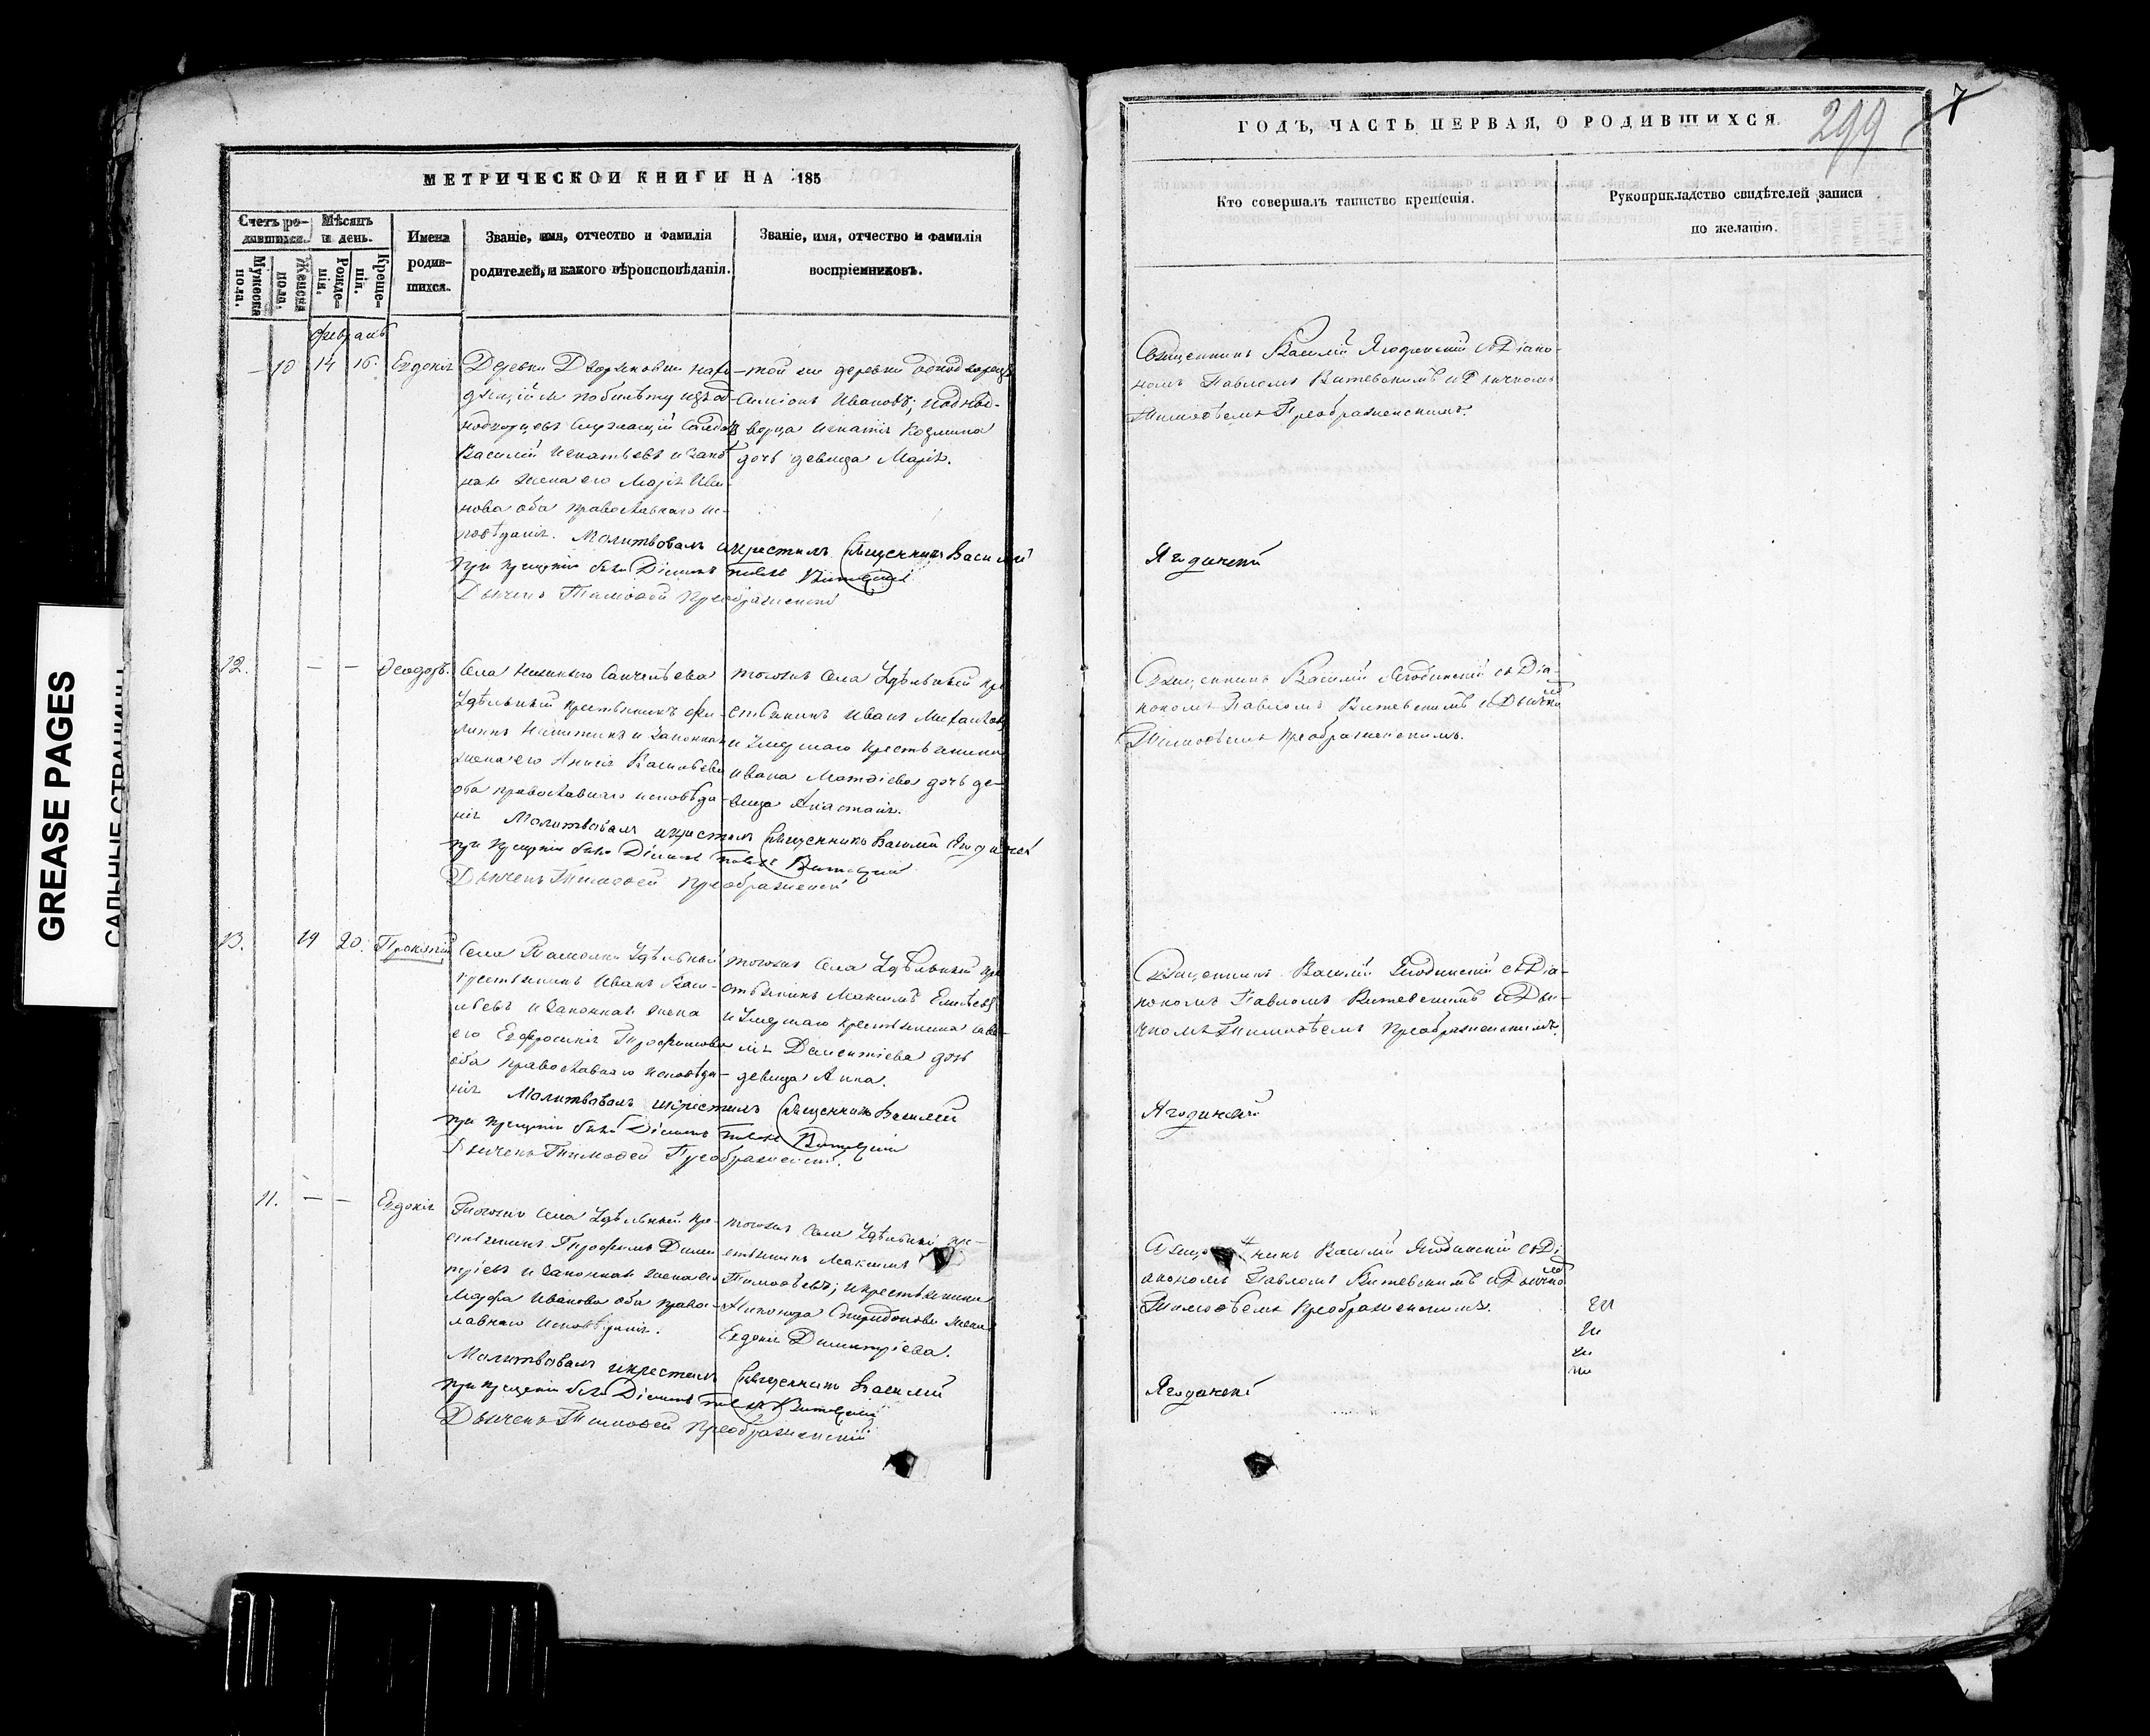 МЕТРИЧЕСКОЙ КНИГИ НА 185
Счетъ ро-
дившихся.
Мѣсяцъ
и день.
Мужеска
пола.
Женска
пола.
Рожде-
нія.
Креще-
нія.
Имена
родив-
шихся.
Званіе, имя, отчество и фамилія
родителей, и какого вѣроисповѣданія.
Званіе, имя, отчество и фамилія
воспріемниковъ.
февраль
10 14 16. Евдокія
Деревни
нодворцевъ служащій
Василій Игнатьевъ и закон-
ная жена его Марія Ива-
нова оба православнаго ис-
повѣданія. Молитвовалъ и крестилъ Священникъ Василій
при крещеніи былъ Діаконъ Павелъ Витевскій
Дьячекъ Тимофей Преображенскій
той же деревни однодворецъ
Симіонъ Ивановъ; и однод-
ворца Игнатія Козмина
дочь девица Марія.
12. — — Феодоръ.
Села
Удѣльный крестьянинъ Фи-
липпъ Никитинъ и законная
жена его Анисія Васильева
оба православнаго исповѣда-
нія Молитвовалъ и крестилъ Священникъ Василій Ягодинскій
при крещеніи былъ Діаконъ Павелъ Витевскій
Дьячекъ Тимофей Преображенскій
тогожъ села Удѣльный кре-
стьянинъ Иванъ Михайловъ,
и умершаго крестьянина
Ивана Матфіева дочь де-
вица Анастасія.
13. 19 20. Прокопій
Села Удѣльный
крестьянинъ Иванъ Васи-
льевъ и законная жена
его Евфросинія Трофимова
оба православнаго исповѣда-
нія Молитвовалъ и крестилъ Священникъ Василій
при крещеніи былъ Діаконъ Павелъ Витевскій
Дьячекъ Тимофей Преображенскій.
тогожъ села Удѣльный кре-
стьянинъ Максимъ Елисѣевъ
и умершаго крестьянина Саве-
лія дочь
девица Анна.
11. — — Евдокія
Тогожъ села Удѣльный кре-
стьянинъ Трофимъ Дими-
тріевъ и законная жена его
Марфа Иванова оба право-
лавнаго исповѣданія.
Молитвовалъ и крестилъ Священникъ Василій
при крещеніи былъ Діаконъ Павелъ Витевскій
Дьячекъ Тимофей Преображенскій
тогожъ села Удѣльный кре-
стьянинъ Максимъ
Тимофѣевъ; и крестьянина
Никонора Спиридонова жена
Евдокія Димитріева.
299
7
ГОДЪ, ЧАСТЬ ПЕРВАЯ, О РОДИВШИХСЯ
Кто совершалъ таинство крещенія.
Рукоприкладство свидѣтелей записи
по желанію.
Священникъ Василій Ягодинскій съ Діако-
номъ Павломъ Витевскимъ и Дьячкомъ
Тимофѣемъ Преображенскимъ.
Ягодинскій
Священникъ Василій Ягодинскій съ Діа-
кономъ Павломъ Витевскимъ и Дьячкомъ
Тимофѣемъ Преображенскимъ.
Священникъ Василій Ягодинскій съ Діа-
кономъ Павломъ Витевскимъ и Дья-
чкомъ Тимофѣемъ Преображенскимъ.
Ягодинскій
Священникъ Василій Ягодинскій съ Ді-
акономъ Павломъ Витевскимъ и Дьячкомъ
Тимофѣемъ Преображенскимъ.
Ягодинскій
GREASE PAGES
САЛЬНЫЕ СТРАНИЦЫ